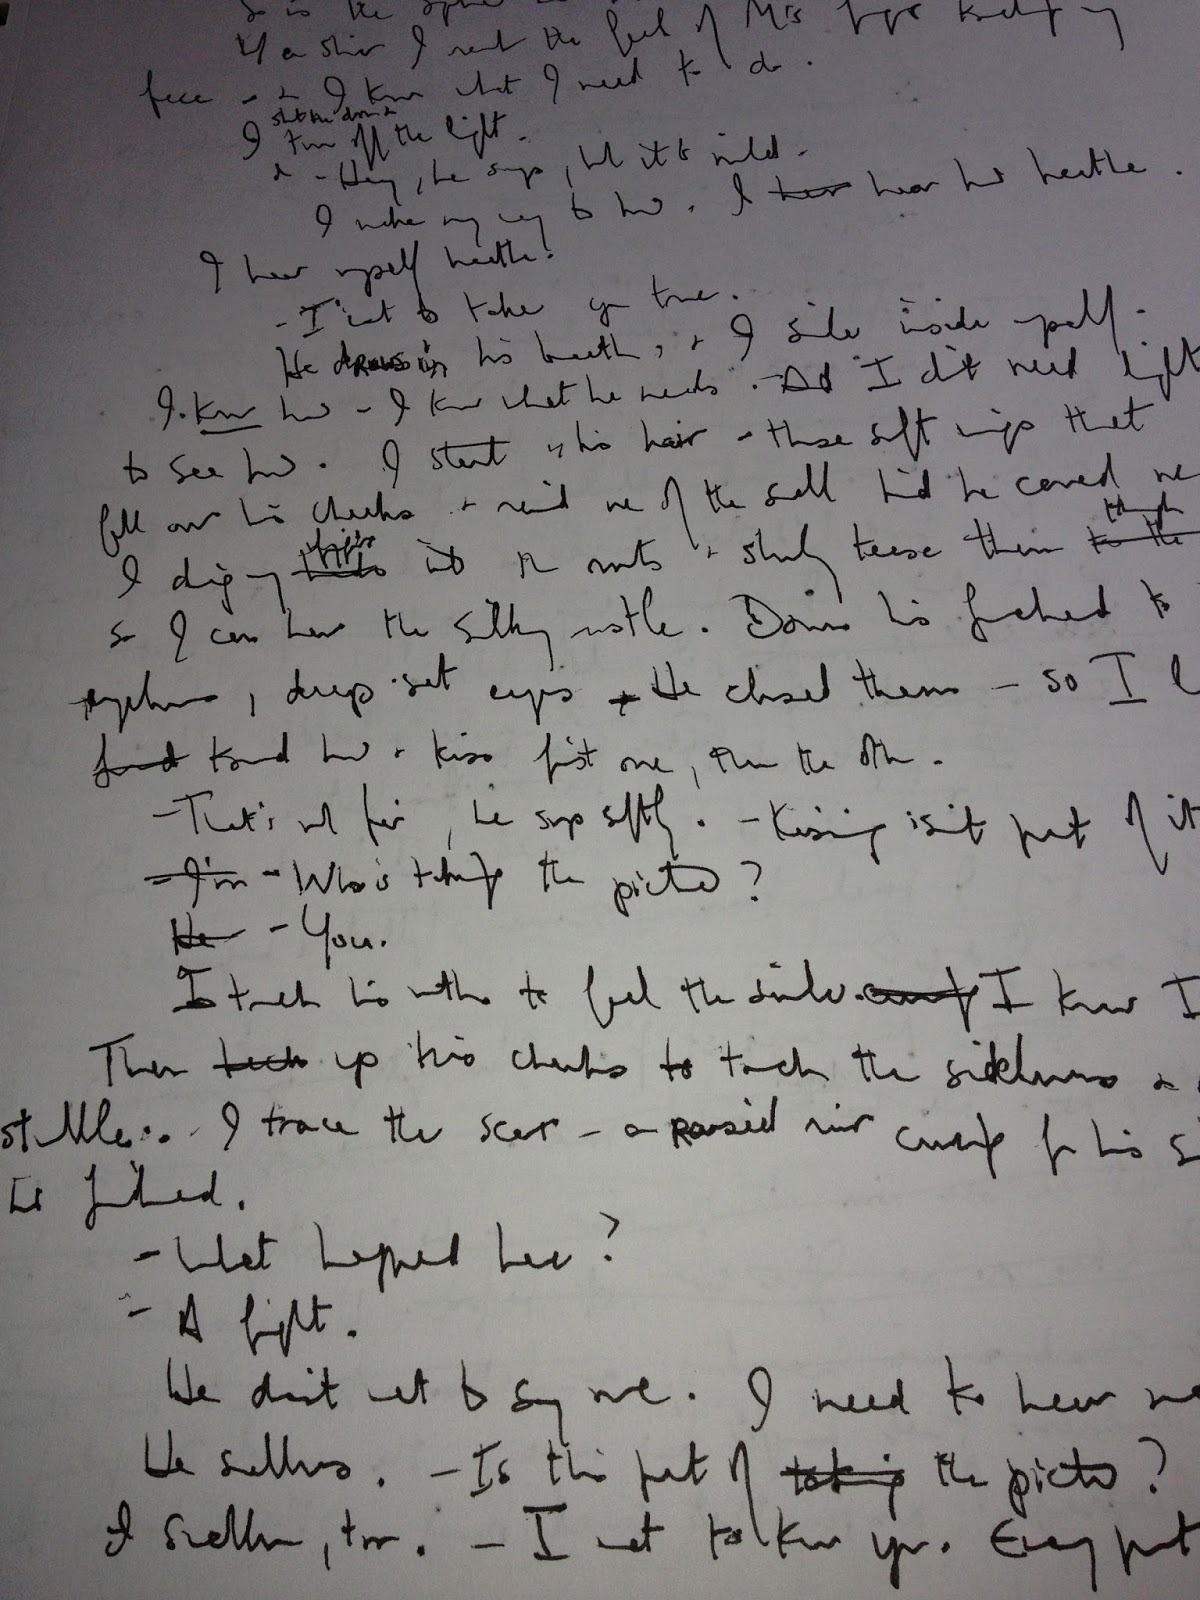 So is the
I need the feel of
face - + I know what I need to do.
shut the door +
I turn off the light.
- Hey, he says, but it's mild.
I make my way to him. I hear him breathe.
I hear myself breathe.
- I want to take you
He draws in his breath, + I smile inside myself.
I know him - I know what he needs. And I don't need light
to see him. I start in his hair - those soft wings that
fall over his cheeks + remind me of the small bird he carved me
I dig my into the roots + slowly tease them through
so I can hear the silky rustle. Down his forehead to
eyebrows, deep-set eyes. He closed them - so I
toward him + kiss first one, then the other.
- That's not fair, he says softly. - Kissing isn't part of it
I'm - Who's taking the picture?
He - You.
I touch his mouth to feel the smile. I knew I
Then up his cheeks to touch the sideburns
stubble. I trace the scar - a raised curving
forehead.
- What happened here?
- A fight.
He don't want to say more. I need to hear
He swallows. - Is this part of taking the picture?
I swallow, too. - I want to know you. Every part